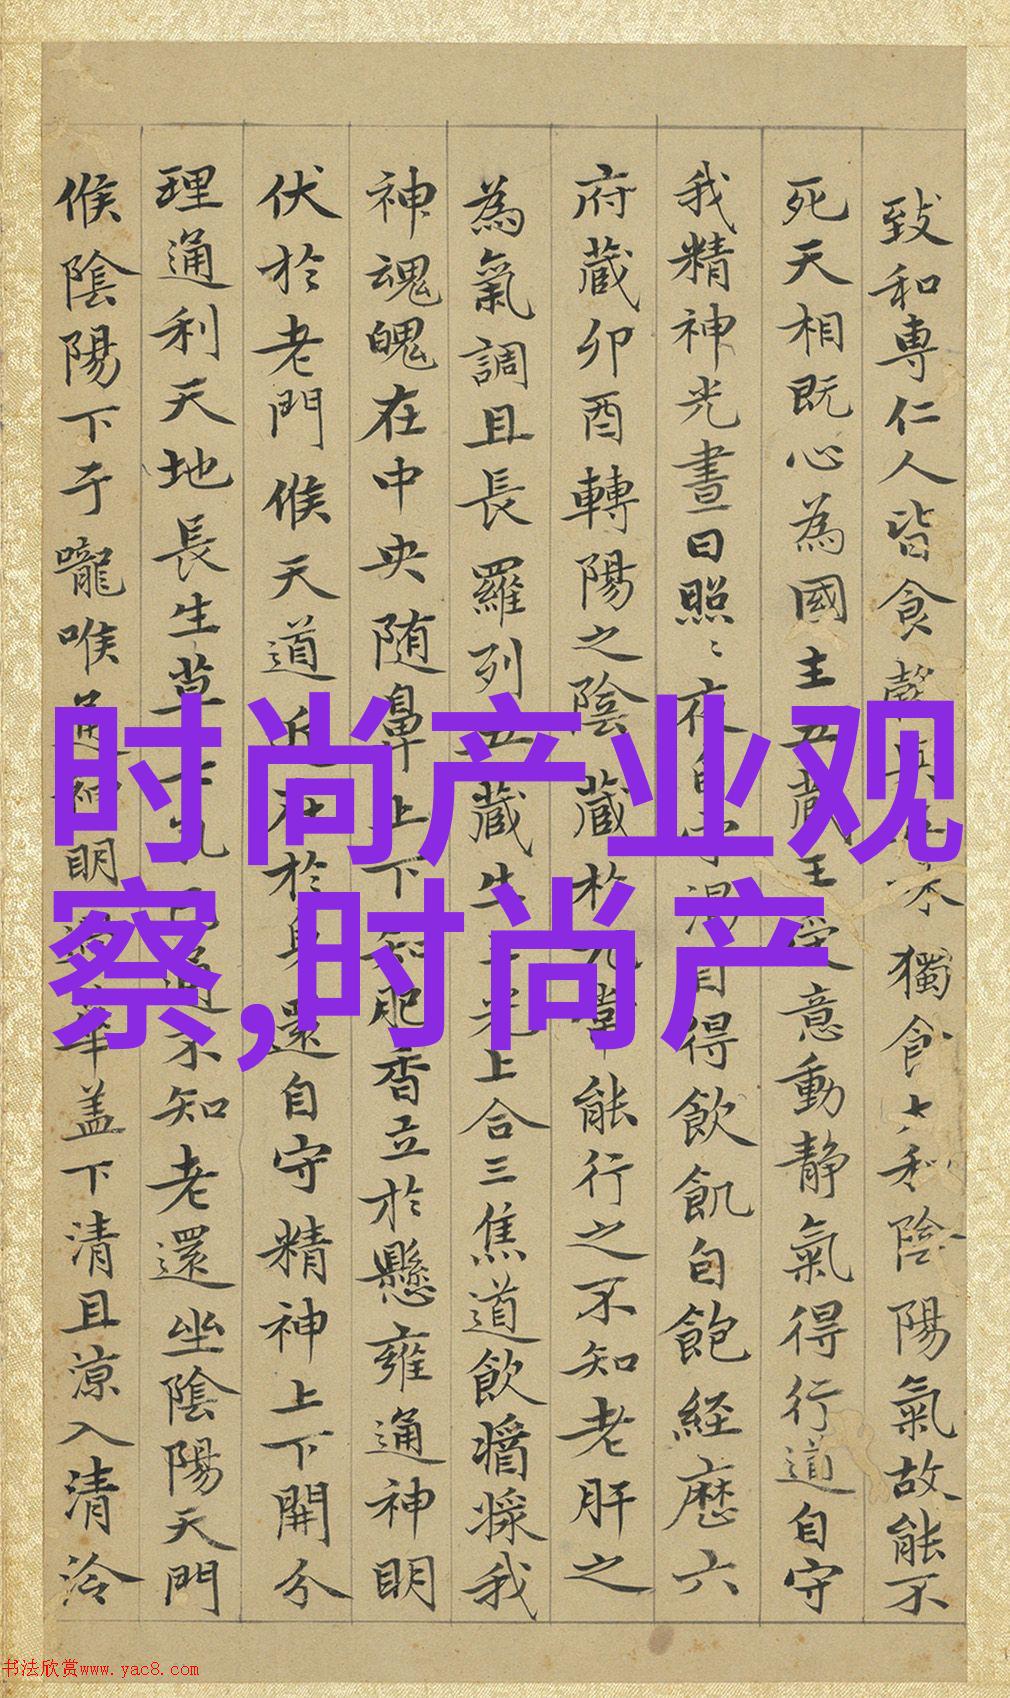 致和專仁人皆食
獨食太和陰陽氣故能不
死天相既心為國主五藏王受意動静氣得行道自守
我精神光晝日照〻夜自
得飲飢自飽経歷六
府藏卯酉轉陽之陰藏
能行之不知老肝之
為氣調且長羅列五藏生三光上合三焦道飲醬𤖅我
神魂魄在中央随鼻上下知肥香立於懸雍通神明
伏於老門候天道近在於身還自守精神上下開分
理通利天地長生草七孔已通不知老還坐陰陽天門
候陰陽下于嚨喉通神明
華盖下清且涼入清泠
时尚产业观
察,时尚产
书法欣赏www.yac8.com